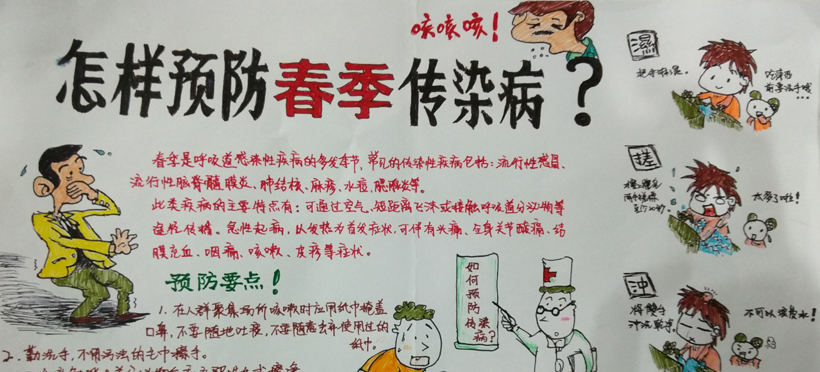 咳咳咳！
怎样预防春季传染病？
春季是呼吸道感染性疾病的多发季节，常见的传染性疾病包括：流行性感冒、
流行性脑脊髓膜炎、肺结核、麻疹、水痘、腮腺炎等。
此类疾病的主要特点有：可通过空气、短距离飞沫或接触呼吸道分泌物等
途径传播。急性起病，以发热为首发症状，可伴有头痛、全身关节酸痛、结
膜充血、咽痛、咳嗽、皮疹等症状。
预防要点！
1、在人群聚集场所咳嗽时应用纸巾掩盖
口鼻，不要随地吐痰，不要随意丢弃使用过的
纸巾。
2、勤洗手，不用污浊的毛巾擦手。
如何预防传染病？
湿
把手淋湿。
吃东西
前要洗手哦…
搓
太棒了啦！
冲
将双手
冲洗干净
不可以浪费水！